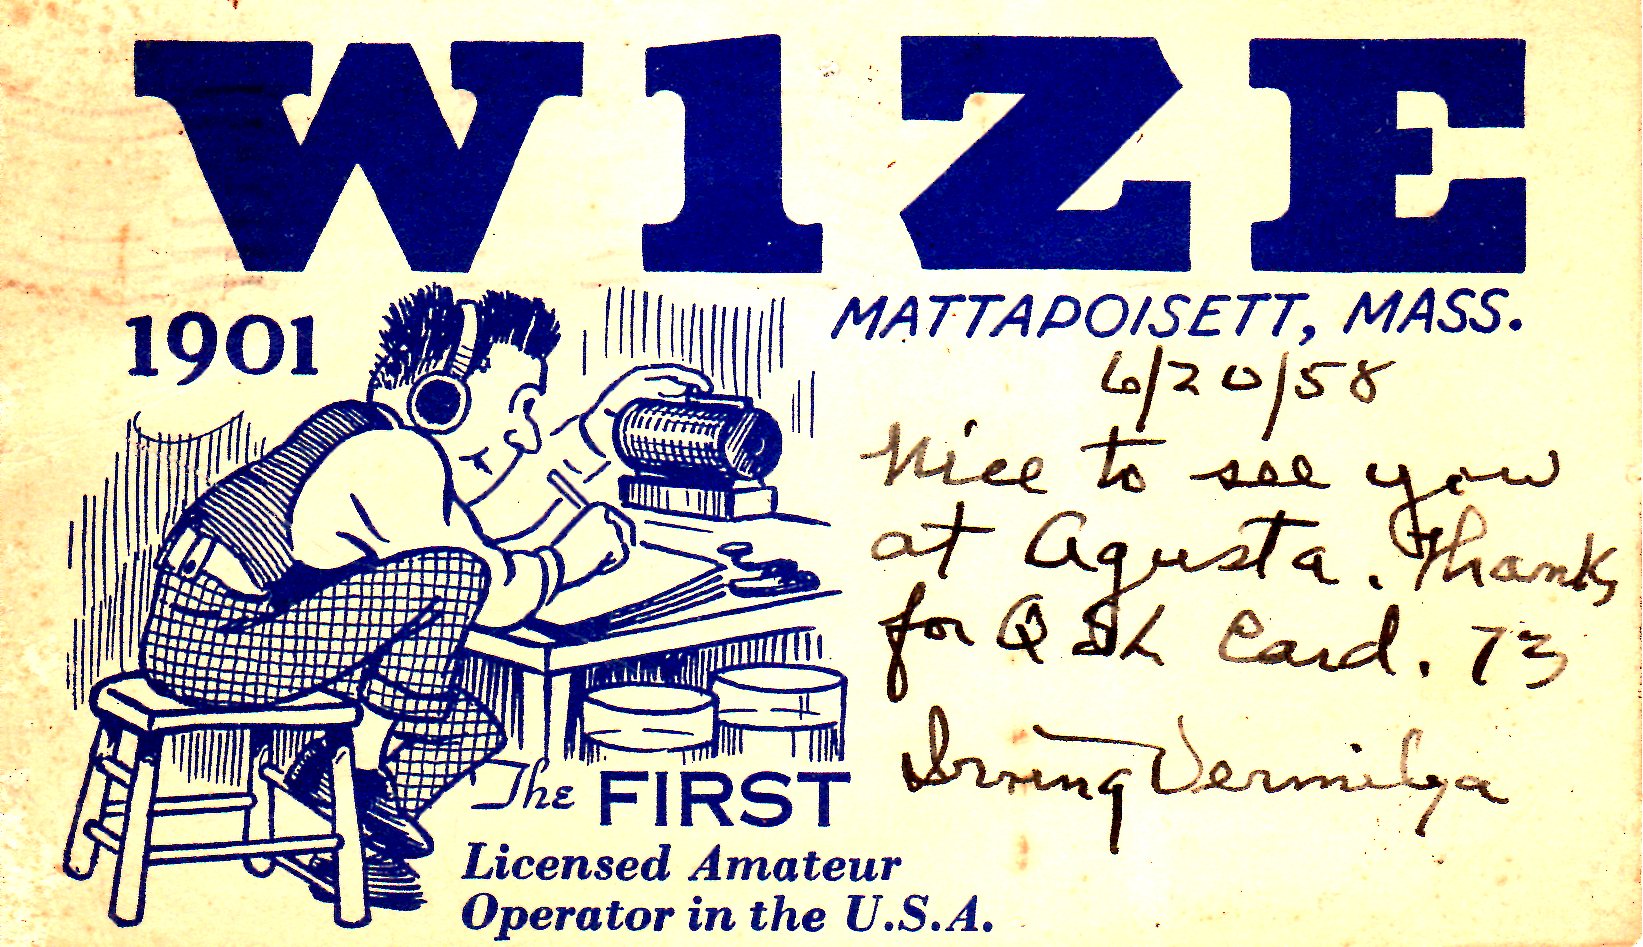 W1ZE
1901
MATTAPOISETT, MASS.
6/20/58
Nice to see you
at Agusta. Thanks
for QSL Card. 73
Irving Vermilya
The FIRST
Licensed Amateur
Operator in the U.S.A.